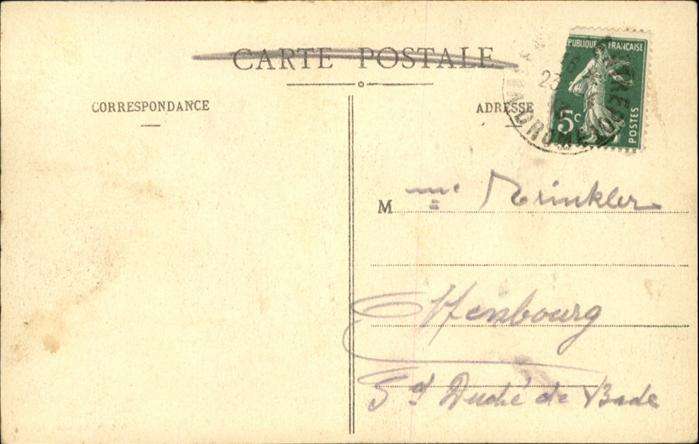 CARTE POSTALE
CORRESPONDANCE
ADRESSE
RÉPUBLIQUE FRANÇAISE
5c
POSTES
23
DROME
M me Trinkler
Offenbourg
Gd Duché de Bade